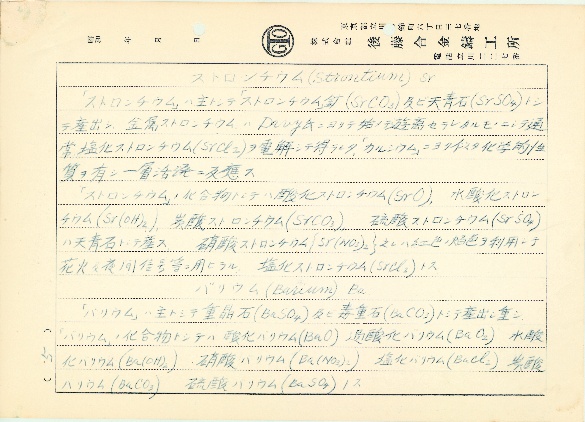 昭和 年 月 日
株式会社 後藤合金鋳工所
ストロンチウム(Strontium) Sr
「ストロンチウム」ハ主トシテ「ストロンチウム鉱(SrCO3)及ビ天青石(SrSO4)トシ
テ産出シ、金属ストロンチウムハ Davy氏ニヨリテ始メテ セラレタルモノニシテ通
常塩化ストロンチウム(SrCl2)ヲ電解シテ得ラレ、カルシウムニヨク似タ化学的性
質ヲ有シ一層活溌ニ反應ス
「ストロンチウム」ノ化合物トシテハ酸化ストロンチウム(SrO)、水酸化ストロン
チウム(Sr(OH)2)、炭酸ストロンチウム(SrCO3) 硫酸ストロンチウム(SrSO4)
ハ天青石トシテ産ス 硝酸ストロンチウム{Sr(NO3)2} 色ノ焔色ヲ利用シテ
花火ヤ夜間信号等ニ用ヒラル 塩化ストロンチウム(SrCl2)トス
バリウム(Barium) Ba
「バリウム」ハ主トシテ重晶石(BaSO4)及ビ毒重石(BaCO3)トシテ産出シ
「バリウム」ノ化合物トシテハ酸化バリウム(BaO) 過酸化バリウム(BaO2) 水酸
化バリウム(Ba(OH)2) 硝酸バリウム(Ba(NO3)2) 塩化バリウム(BaCl2) 炭酸
バリウム(BaCO3) 硫酸バリウム(BaSO4)トス